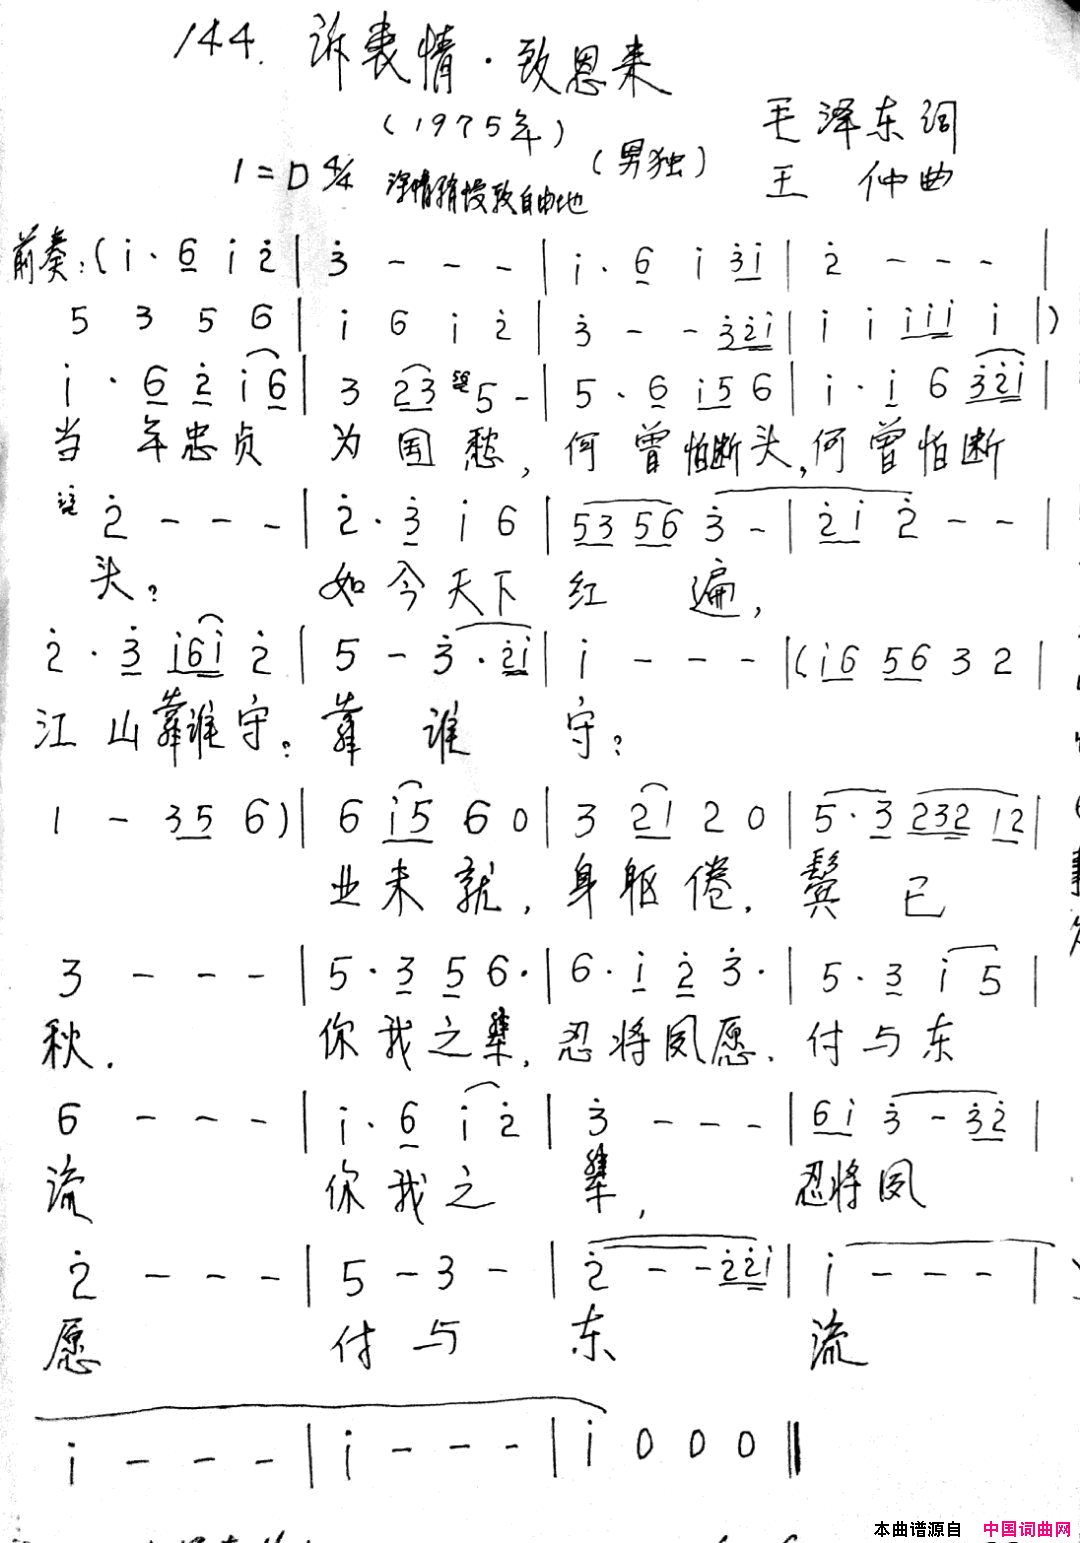 144. 诉衷情·致恩来
(1975年)
毛泽东词
1=D 4/4 深情稍慢较自由地 (男独)
王 仲曲
前奏:(i·6 i 2 | 3 - - - | i·6 i 3i | 2 - - - |
5 3 5 6 | i 6 i 2 | 3 - - 32i | i i iii i |)
i·6 2 i6 | 3 23 5 - | 5·6 i5 6 | i·i 6 32i |
当 年忠贞 为 国 愁, 何 曾怕断头,何曾怕断
2 - - - | 2·3 i 6 | 53 56 3 - | 2i 2 - - |
头? 如今天下 红 遍,
2·3 i6i 2 | 5 - 3·2i | i - - - | (i6 56 3 2 |
江 山靠谁守?靠 谁 守?
1 - 35 6) | 6 i5 6 0 | 3 21 2 0 | 5·3 232 12 |
业未就, 身躯倦, 鬓 已
3 - - - | 5·3 5 6· | 6·i 2 3· | 5·3 i 5 |
秋. 你我之辈, 忍将夙愿. 付与东
6 - - - | i·6 i 2 | 3 - - - | 6i 3 - 32 |
流 你我之 辈, 忍将夙
2 - - - | 5 - 3 - | 2 - - 22i | i - - - |
愿 付 与 东 流
i - - - | i - - - | i 0 0 0 ‖
本曲谱源自 中国词曲网